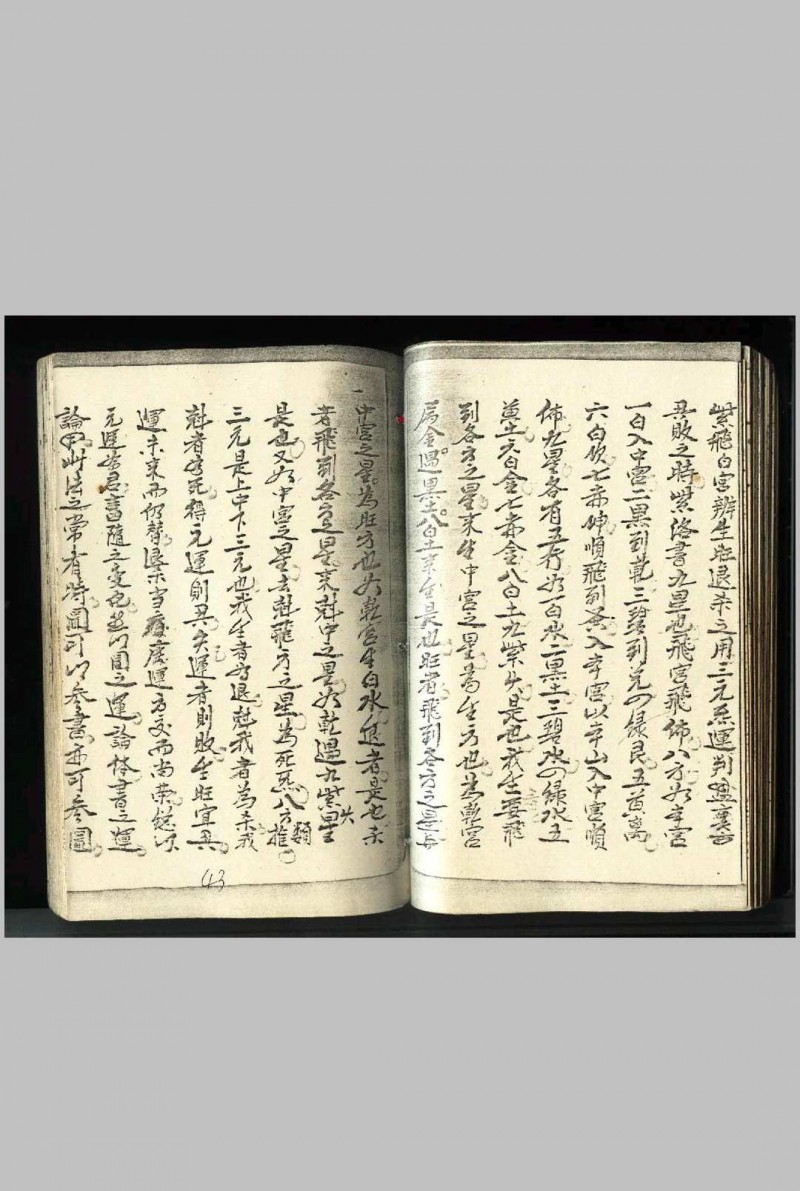 紫飛白宮辨生旺退杀之用三元系運判盛衰
兴敗之時紫洛書九星也飛宮飛佈八方如本宮
一白入中宮二黑到乾三碧到兌四綠艮五黄离
六白坎七赤坤順飛到入本宮以本山入中宮順
佈九星各有五行如一白水二黑土三碧木四綠木五
黄土六白金七赤金八白土九紫火是也我生要飛
到各方之星来生中宮之星為生方也為乾宮
属金遇黑土八白土来生是也旺者飛到各方之星与
中宮之星為旺方也如乾宮生白水退者是也杀
者飛到各方之星来尅中之星如乾遇九紫星火
是也又如中宮之星去尅飛方之星為死炁八方推類
三元是上中下三元也我生者為退尅我者為杀我
尅者為死得元運則兴失運者則敗生旺宜兴
運未来而仍替退杀当廢運方交而尚荣総以
元運為君書随之变也並以圖之運論体書之運
論用此法之常者時圖可以参書亦可参圖
43